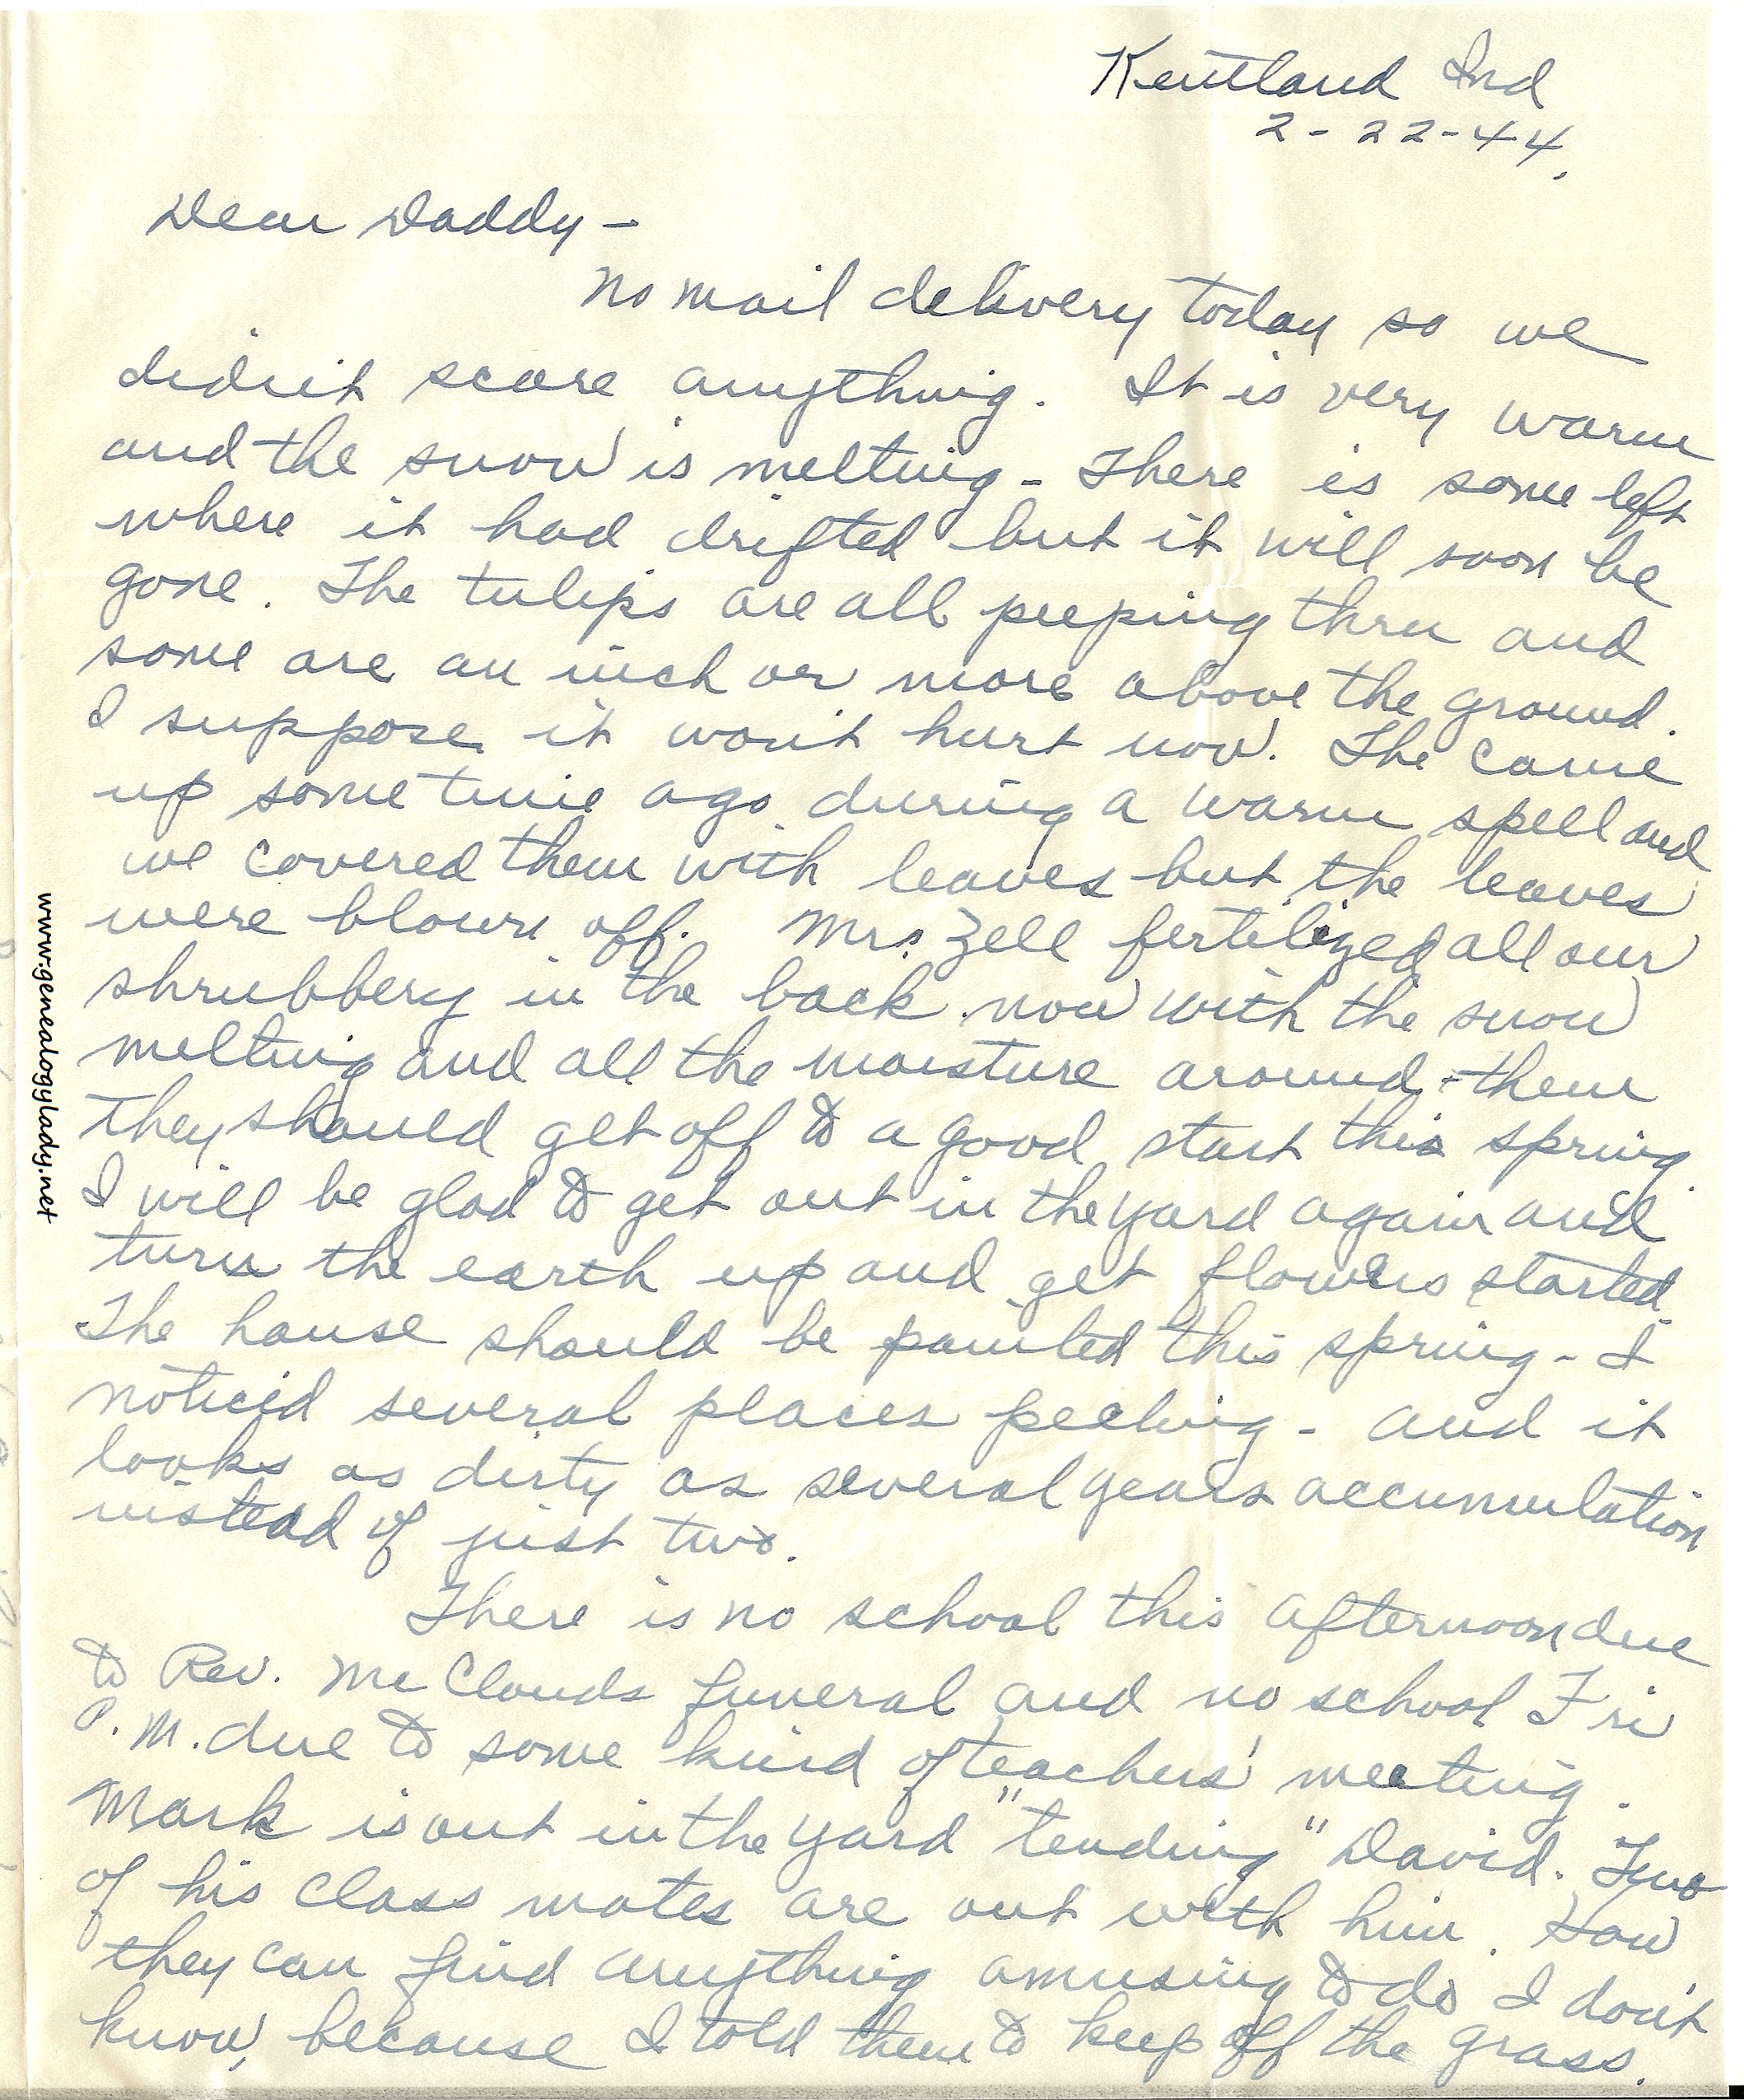 Kentland Ind
2-22-44.
Dear Daddy -
No mail delivery today so we
didn't score anything. It is very warm
and the snow is melting - There is some left
where it had drifted but it will soon be
gone. The tulips are all peeping thru and
some are an inch or more above the ground.
I suppose it won't hurt now. The came
up some time ago during a warm spell and
we covered them with leaves but the leaves
were blown off. Mrs. Zell fertilized all our
shrubbery in the back now with the snow
melting and all the moisture around them
they should get off to a good start this spring.
I will be glad to get out in the yard again and
turn the earth up and get flowers started.
The house should be painted this spring - I
noticed several places peeling - and it
looks as dirty as several years accumulation
instead of just two.
There is no school this afternoon due
to Rev. McClouds funeral and no school Fri
P.M. due to some kind of teachers' meeting.
Mark is out in the yard "tending" David. Two
of his class mates are out with him. How
they can find anything amusing to do I don't
know, because I told them to keep off the grass.
www.genealogylady.net